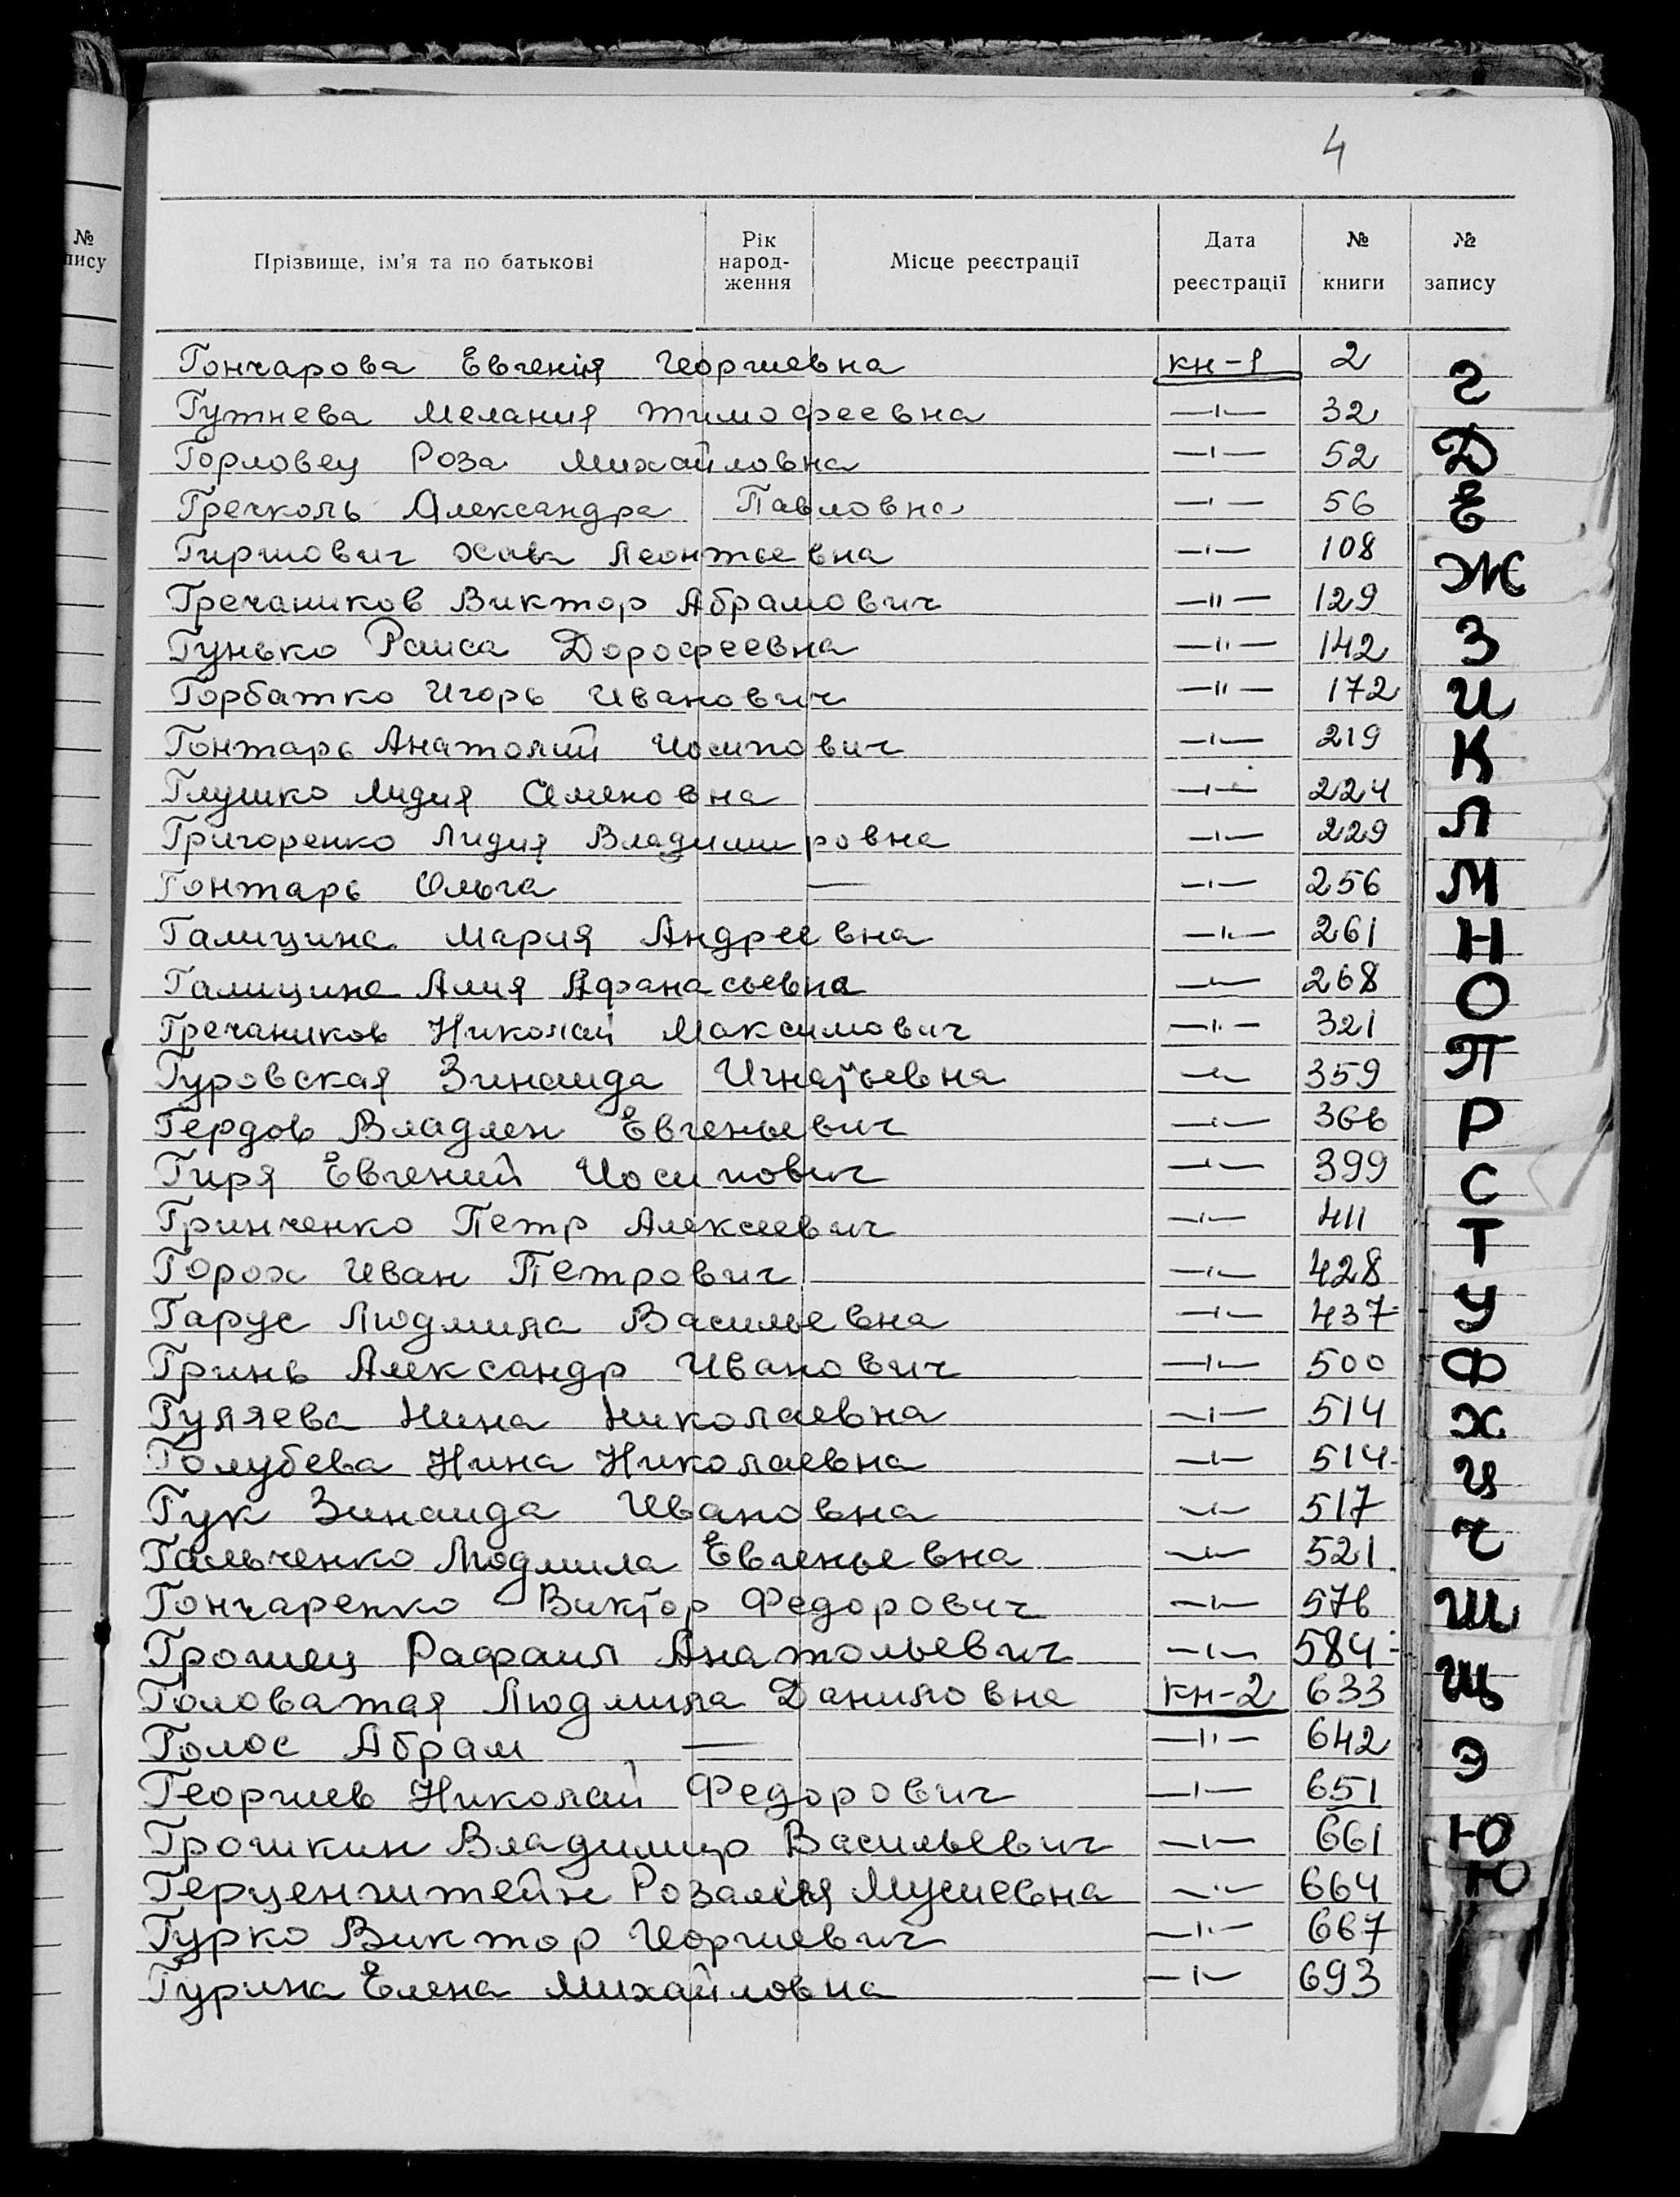 4
№
пису
Прізвище, ім'я та по батькові
Рік
народ-
ження
Місце реєстрації
Дата
реєстрації
№
книги
№
запису
Гончарова Евгенія Георгиевна кн-1 2
Гутнева Мелания Тимофеевна —ı— 32
Горловец Роза Михайловна —ı— 52
Гречколь Александра Павловна —ı— 56
Гиршович Хава Леонтьевна —ı— 108
Гречаников Виктор Абрамович —ıı— 129
Гунько Раиса Дорофеевна —ıı— 142
Горбатко Игорь Иванович —ıı— 172
Гонтарь Анатолий Иосипович —ı— 219
Глушко Лидия Семеновна —ı— 224
Григоренко Лидия Владимировна —ı— 229
Гонтарь Ольга — —ı— 256
Галицина Мария Андреевна —ı— 261
Галицина Алия Афанасьевна —ı— 268
Гречаников Николай Максимович —ı— 321
Гуровская Зинаида Игнатьевна —ı— 359
Гердов Владлен Евгеньевич —ı— 366
Гиря Евгений Иосипович —ı— 399
Гринченко Петр Алексеевич —ı— 411
Горох Иван Петрович —ı— 428
Гарус Людмила Васильевна —ı— 437
Гринь Александр Иванович —ı— 500
Гуляева Нина Николаевна —ı— 514
Голубева Нина Николаевна —ı— 514
Гук Зинаида Ивановна —ı— 517
Гальченко Людмила Евгеньевна —ı— 521
Гончаренко Виктор Федорович —ı— 576
Громец Рафаил Анатольевич —ı— 584
Головатая Людмила Даниловна кн-2 633
Голос Абрам — —ıı— 642
Георгиев Николай Федорович —ı— 651
Грошкин Владимир Васильевич —ı— 661
Герценштейн Розалия Мусиевна —ı— 664
Гурко Виктор Георгиевич —ı— 667
Гурина Елена Михайловна —ı— 693
Г
Д
Е
Ж
З
И
К
Л
М
Н
О
П
Р
С
Т
У
Ф
Х
Ц
Ч
Ш
Щ
Э
Ю
Ю